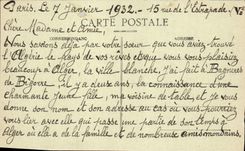 Paris. Le 7 Janvier 1932. - 15 rue de l'Estrapade - Ve
CARTE POSTALE
Chère Madame et Amie,
CORRESPONDANCE
Nous savons déjà par votre sœur que vous aviez trouvé
l'Algérie le pays de vos rêves et que vous vous plaisiez
beaucoup à Alger, la ville blanche. J'ai fait à Bagnères
de Bigorre, il y a deux ans, la connaissance d'une
charmante jeune fille, ma voisine de table, et je vous
donne son nom et son adresse au cas où vous pourriez
vous lier avec elle qui passe une partie de son temps à
Alger où elle a de la famille et de nombreuses amies mondaines,